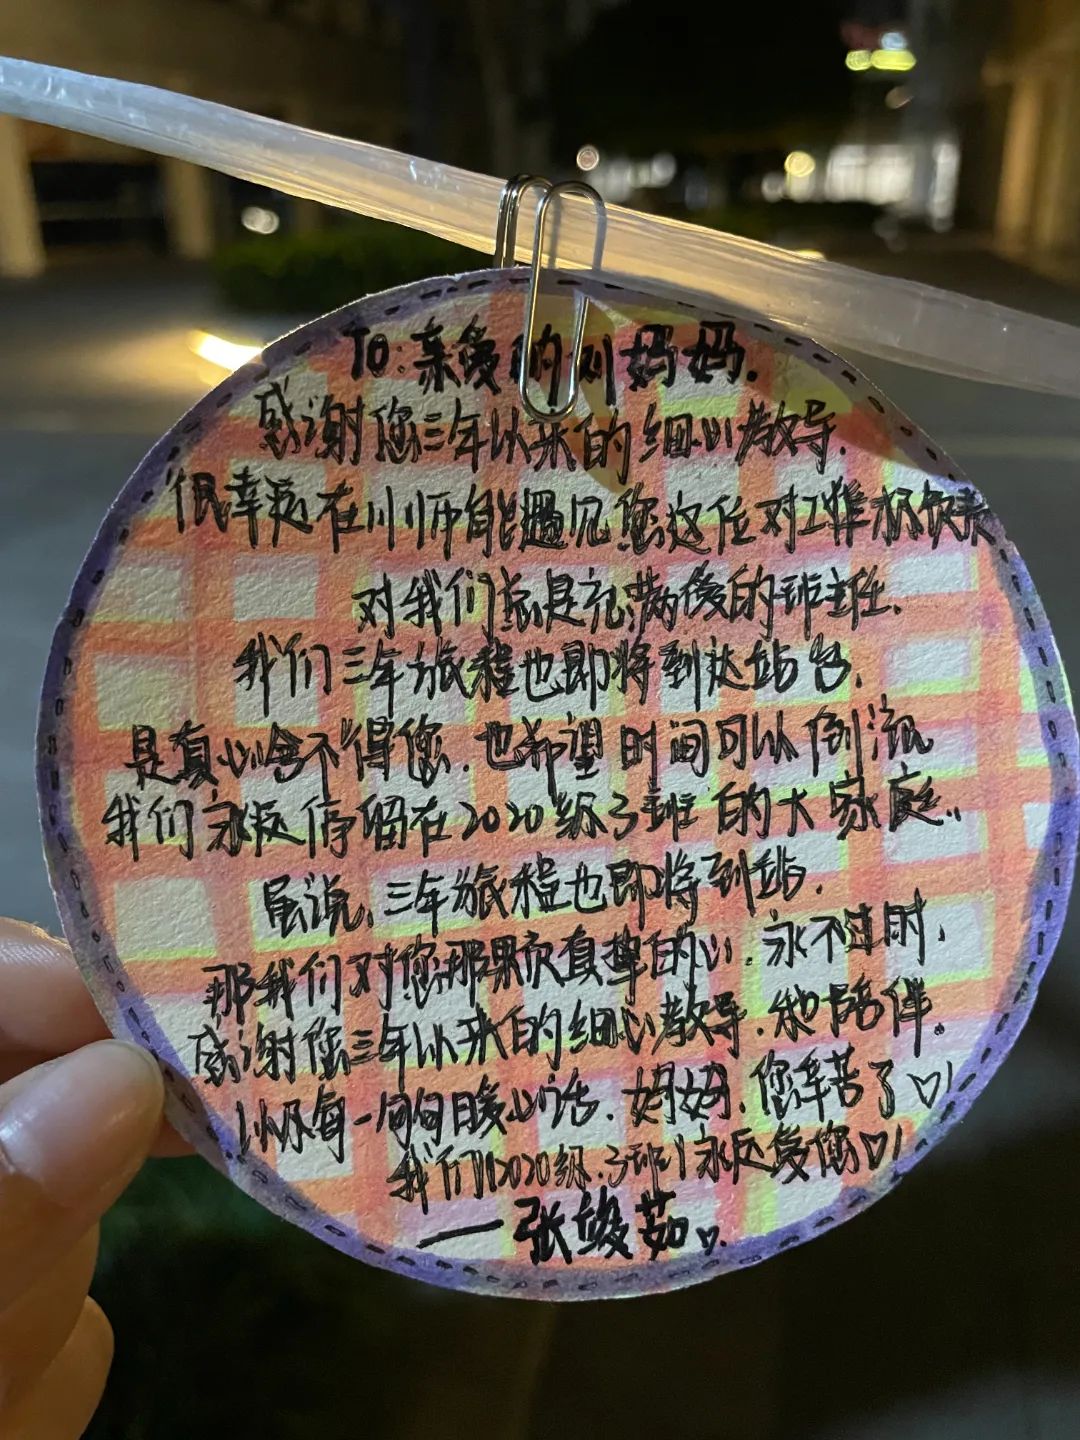 TO:亲爱的刘妈妈.
感谢您三年以来的细心教导.
很幸运在川师能遇见您这位对工作极负责
对我们总是充满爱的班主任.
我们三年旅程也即将到达站台.
是真心舍不得您.也希望时间可以倒流
我们永远停留在2020级3班的大家庭..
虽说,三年旅程也即将到站.
那我们对您那果页真挚的心.永不过时,
感谢您三年以来的细心教导.和陪伴.
以及每一句句暖心话.妈妈.您辛苦了♡!
我们2020级.3班!永远爱您♡!
—张竣茹♡.